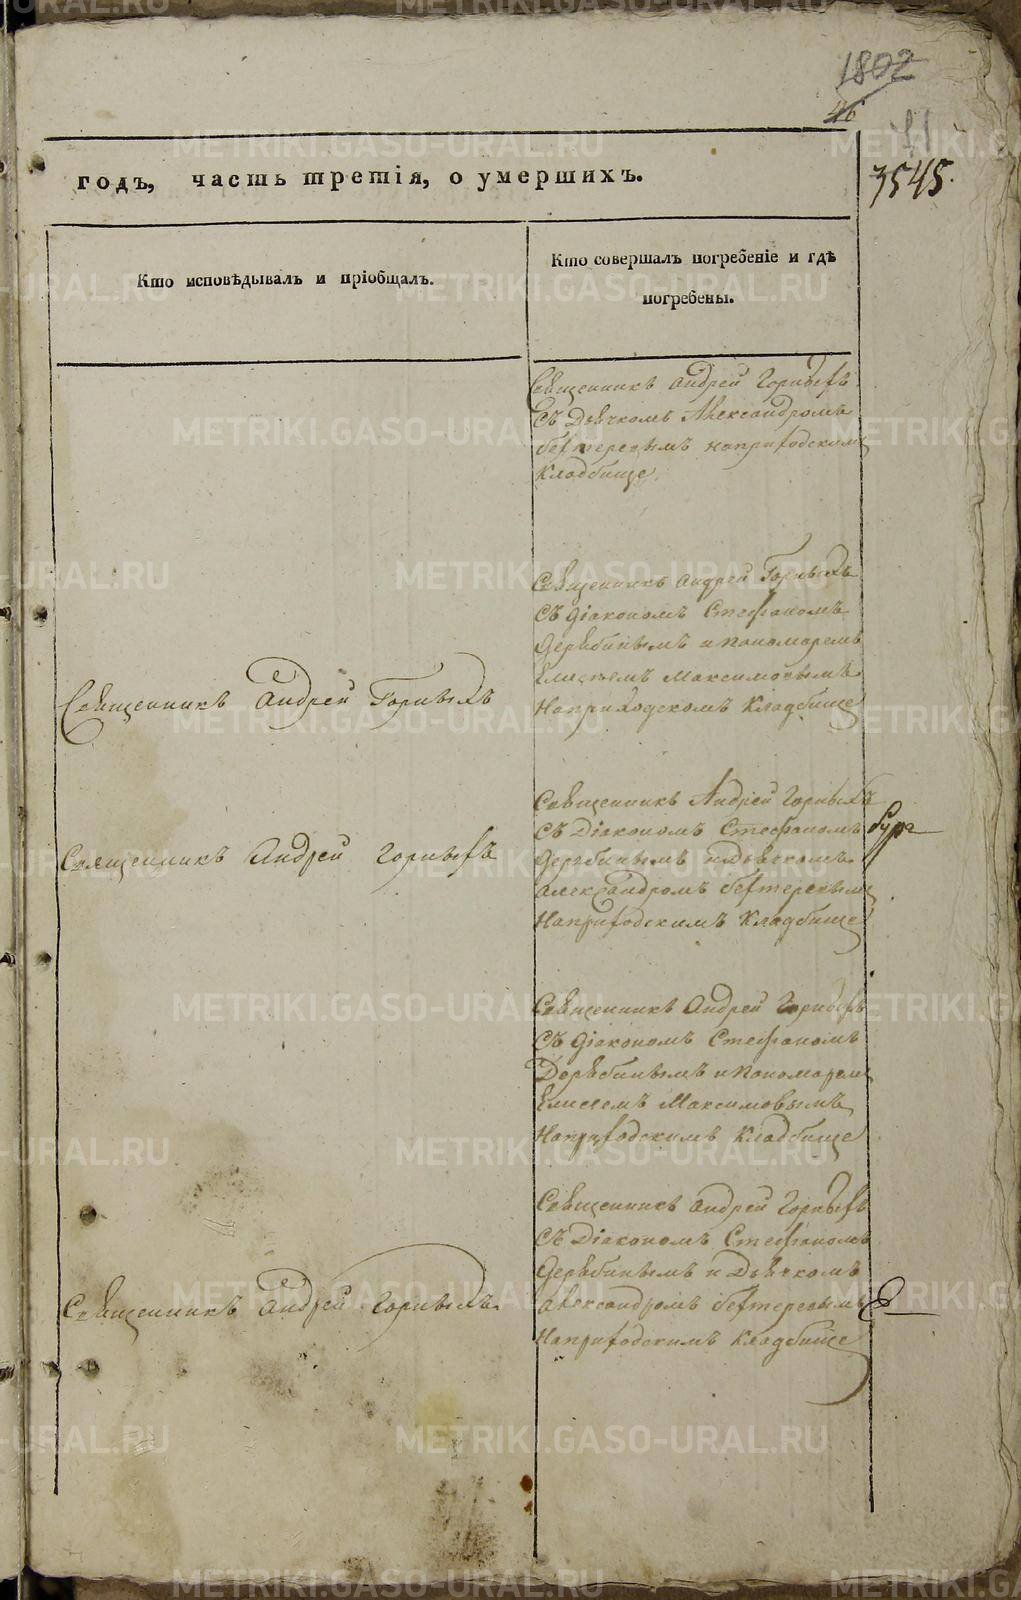 1802
46
3545.
годъ, часть третія, о умершихъ.
Кто исповѣдывалъ и пріобщалъ.
Кто совершалъ погребеніе и гдѣ
погребены.
Священникъ Андрей Горныхъ
Съ Дьячкомъ Александромъ
Бехтеревымъ на приходскомъ
Кладбище.
Священникъ Андрей Горныхъ
Священникъ Андрей Горныхъ
Съ діакономъ Стефаномъ
Дерябинымъ и пономаремъ
Елисеемъ Максимовымъ
На приходскомъ Кладбище
Священникъ Андрей Горныхъ
Священникъ Андрей Горныхъ
Съ Діакономъ Стефаномъ
Дерябинымъ и дьячкомъ
Александромъ Бехтеревымъ
На приходскимъ Кладбище
Священникъ Андрей Горныхъ
Съ діакономъ Стефаномъ
Дерябинымъ и пономаремъ
Елисеемъ Максимовымъ
На приходскимъ Кладбище
Священникъ Андрей Горныхъ
Священникъ Андрей Горныхъ
Съ Діакономъ Стефаномъ
Дерябинымъ и Дьячкомъ
Александромъ Бехтеревымъ
На приходскимъ Кладбище
METRIKI.GASO-URAL.RU